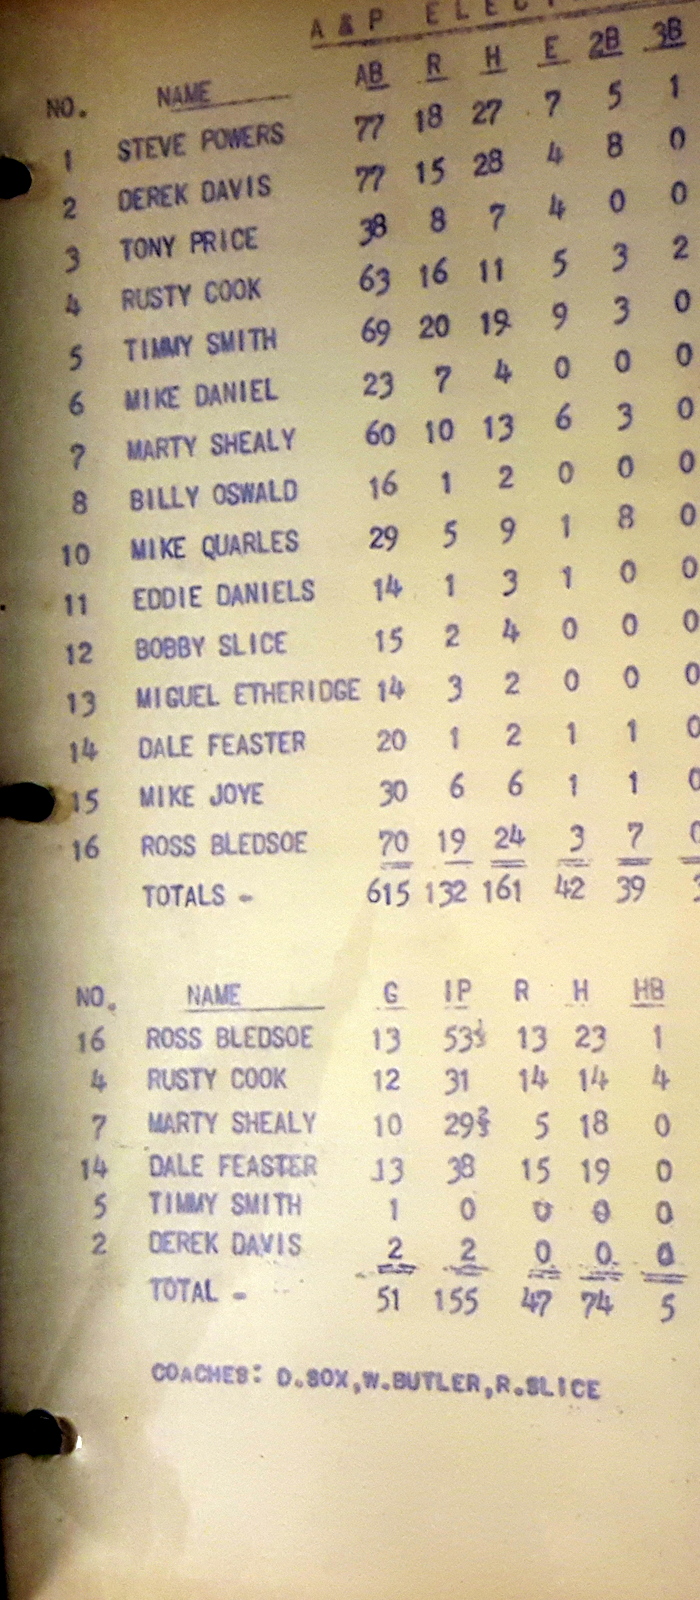 A & P
NO. NAME AB R H E 2B 3B
1 STEVE POWERS 77 18 27 7 5 1
2 DEREK DAVIS 77 15 28 4 8 0
3 TONY PRICE 38 8 7 4 0 0
4 RUSTY COOK 63 16 11 5 3 2
5 TIMMY SMITH 69 20 19 9 3 0
6 MIKE DANIEL 23 7 4 0 0 0
7 MARTY SHEALY 60 10 13 6 3 0
8 BILLY OSWALD 16 1 2 0 0 0
10 MIKE QUARLES 29 5 9 1 8 0
11 EDDIE DANIELS 14 1 3 1 0 0
12 BOBBY SLICE 15 2 4 0 0 0
13 MIGUEL ETHERIDGE 14 3 2 0 0 0
14 DALE FEASTER 20 1 2 1 1 0
15 MIKE JOYE 30 6 6 1 1 0
16 ROSS BLEDSOE 70 19 24 3 7 0
TOTALS - 615 132 161 42 39 3
NO. NAME G IP R H HB
16 ROSS BLEDSOE 13 53⅓ 13 23 1
4 RUSTY COOK 12 31 14 14 4
7 MARTY SHEALY 10 29⅔ 5 18 0
14 DALE FEASTER 13 38 15 19 0
5 TIMMY SMITH 1 0 0 0 0
2 DEREK DAVIS 2 2 0 0 0
TOTAL - 51 155 47 74 5
COACHES: D.SOX,W.BUTLER,R.SLICE